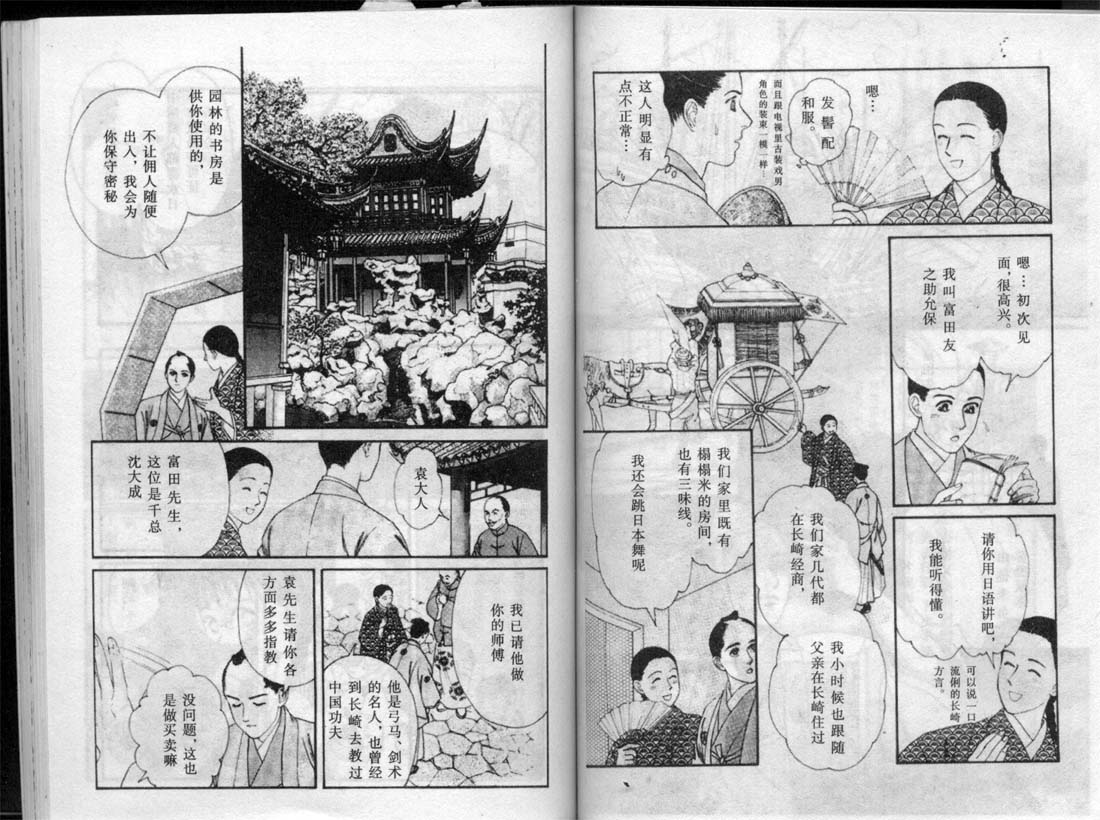 嗯…
发髻配
和服。
而且跟电视里古装戏男
角色的装束一模一样…
这人明显有
点不正常…
嗯…初次见
面,很高兴。
我叫富田友
之助允保
请你用日语讲吧,
我能听得懂。
可以说一口
流俐的长崎
方言。
我们家几代都
在长崎经商,
我小时候也跟随
父亲在长崎住过
我们家里既有
榻榻米的房间,
也有三味线。
我还会跳日本舞呢
园林的书房是
供你使用的,
不让佣人随便
出入,我会为
你保守密秘
袁大人
富田先生,
这位是千总
沈大成
我已请他做
你的师傅
他是弓马、剑术
的名人,也曾经
到长崎去教过
中国功夫
袁先生请你各
方面多多指教
没问题,这也
是做买卖嘛